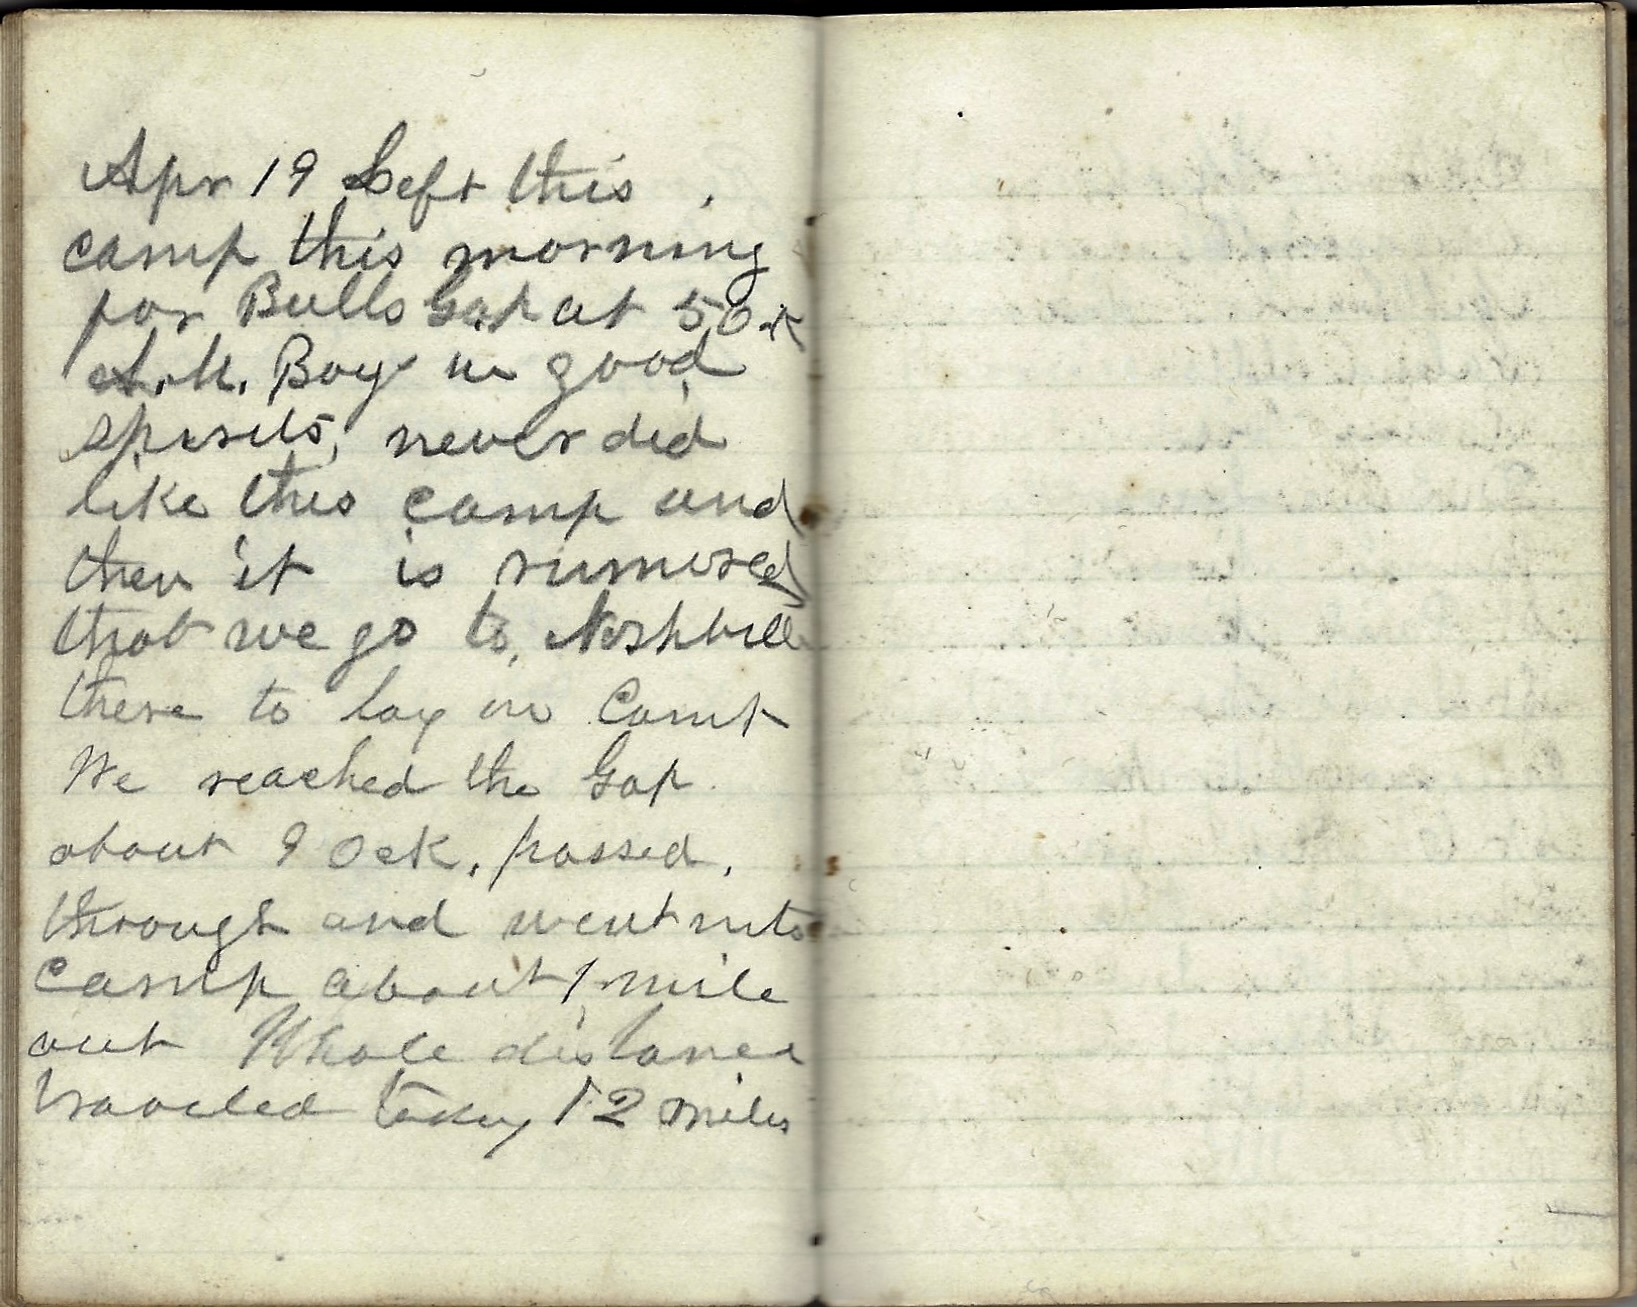 Apr 19 Left this
camp this morning
for Bulls Gap at 5 O.k
A.M. Boys in good
spirits, never did
like this camp and
then it is rumored
that we go to, Nashville
there to lay in Camp
We reached the Gap
about 9 Ock, passed,
through and went into
camp about 1 mile
out Whole distance
traveled today 12 miles